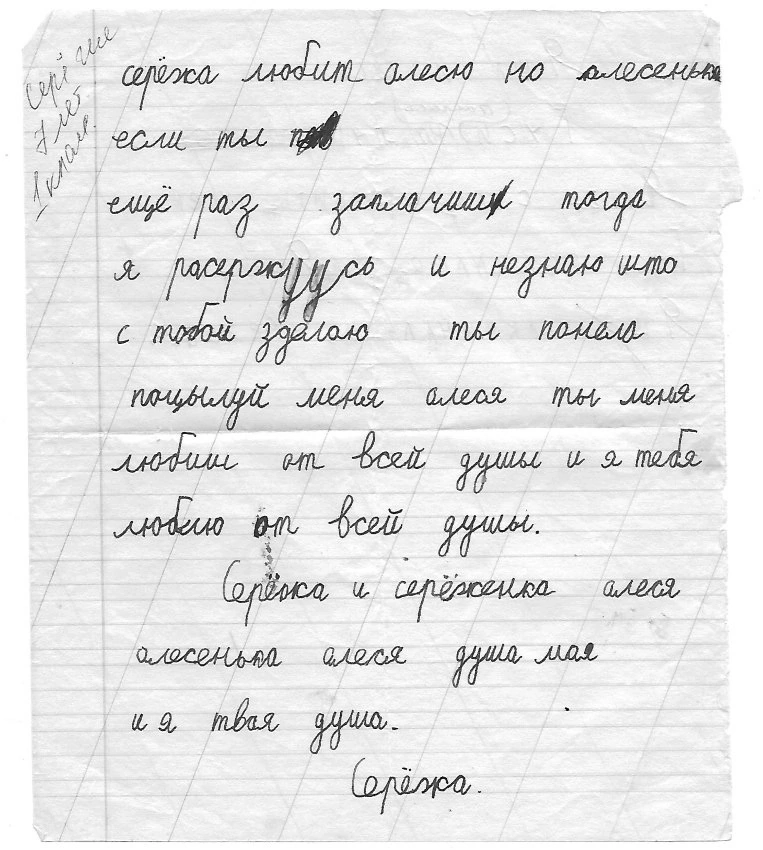 серёже
7 лет
1 класс.
серёжа любит алесю но алесенька
если ты
ещё раз заплачиш тогда
я расержуусь и незнаю што
с тобой зделаю ты понела
поцылуй меня алеся ты меня
любиш от всей душы и я тебя
люблю от всей душы.
Серёжа и серёженка алеся
алесенька алеся душа мая
и я твая душа.
Серёжа.